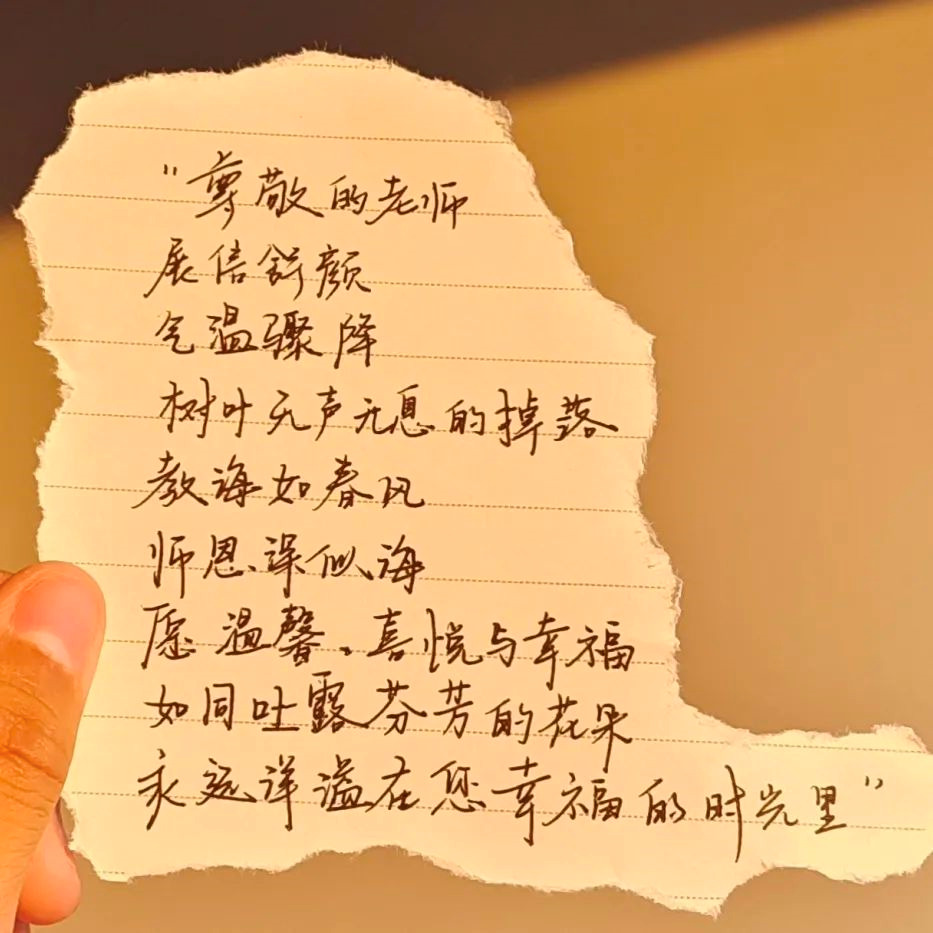 “尊敬的老师
展信舒颜
气温骤降
树叶无声无息的掉落
教诲如春风
师恩深似海
愿温馨、喜悦与幸福
如同吐露芬芳的花朵
永远洋溢在您幸福的时光里”